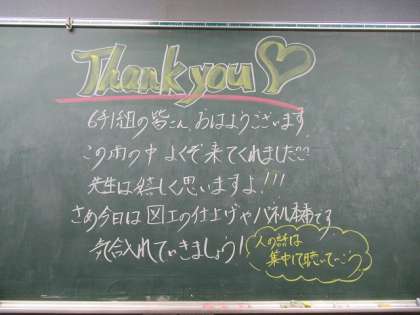 Thank you
6年1組の皆さん、おはようございます。
この雨の中 よくぞ来てくれました!!!
先生は嬉しく思いますよ!!!
さぁ今日は図工の仕上げやパネル本番です
気合入れていきましょう!
人の話は
集中して聴いていこう